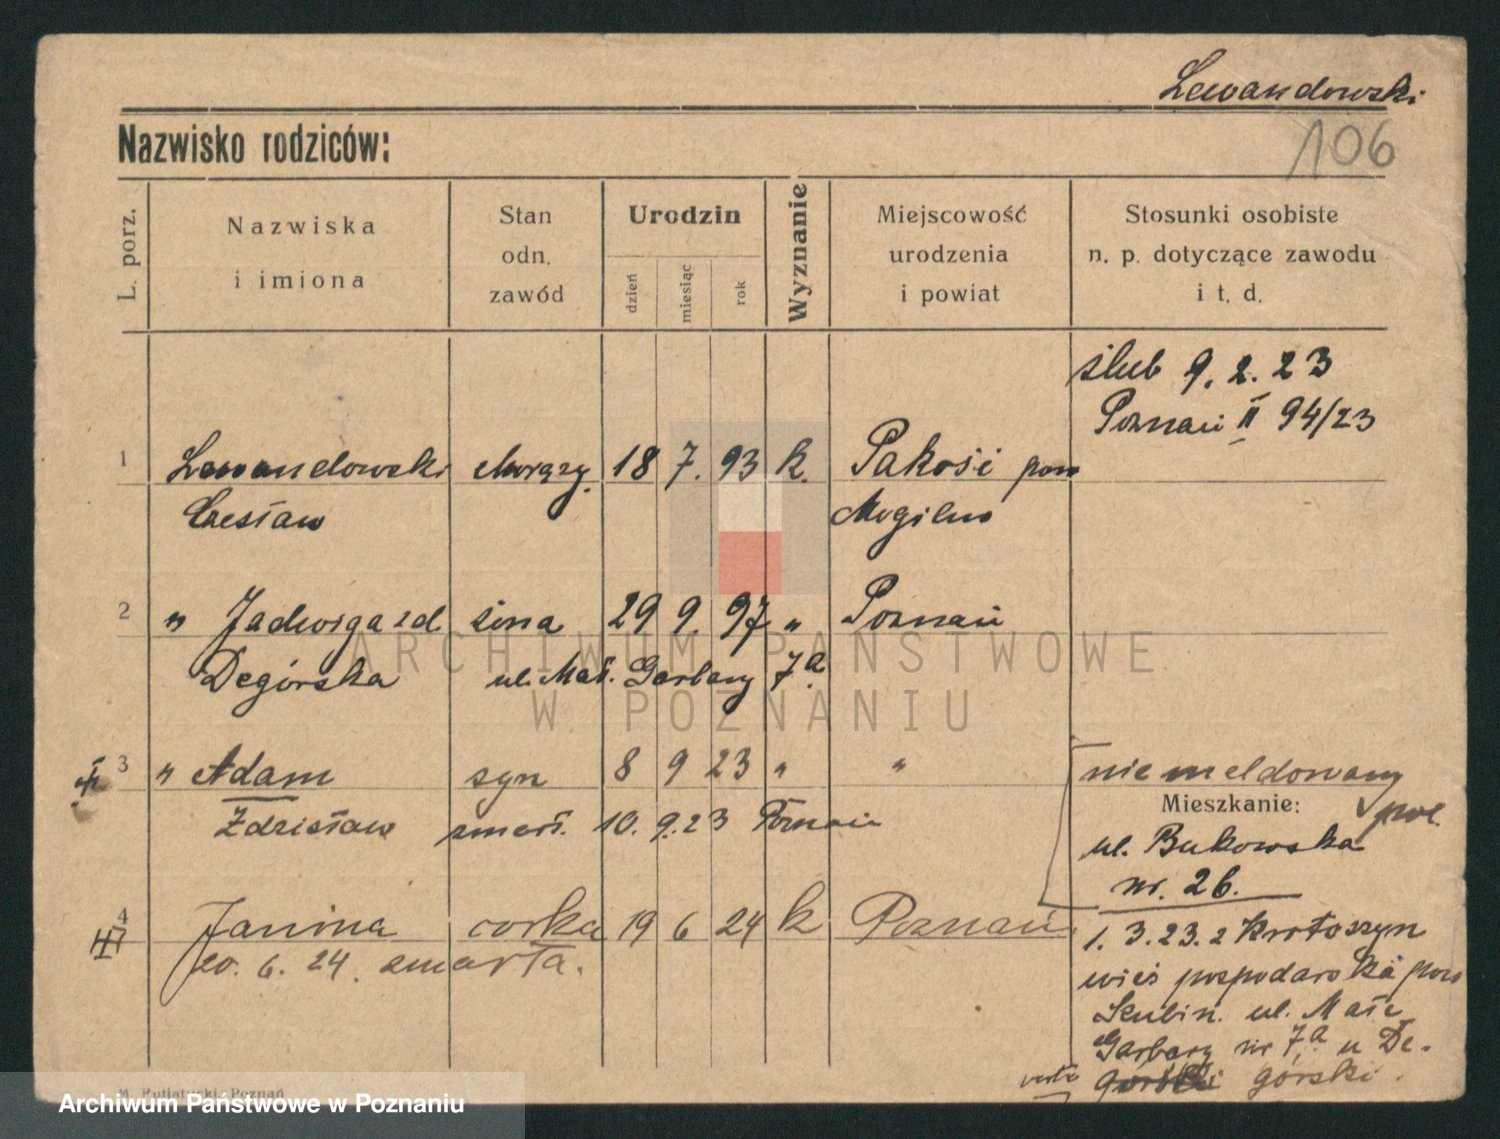 Lewandowski
106
Nazwisko rodziców:
L. porz.
Nazwiska
i imiona
Stan
odn.
zawód
Urodzin
dzień
miesiąc
rok
Wyznanie
Miejscowość
urodzenia
i powiat
Stosunki osobiste
n. p. dotyczące zawodu
i t. d.
ślub 9. 2. 23
Poznań II 94/23
1 Lewandowski chorąży. 18 7. 93 k. Pakość pow
Czesław Mogilno
2 " Jadwiga zd żona 29 9. 97 " Poznań
Degórska ul. Mał. Garbary 7a
3 " Adam syn 8 9 23 " "
Zdzisław zmarł. 10. 9. 23 Poznań
niemeldowany
pol.
Mieszkanie:
ul. Bukowska
nr. 26.
4 Janina corka 19 6 24 k Poznań
20. 6. 24. zmarła.
1. 3. 23. z Krotoszyn
wieś gospodarska pow
Szubin. ul. Małe
Garbary nr 7a u De-
górski.
verte
ARCHIWUM PAŃSTWOWE
W POZNANIU
Poznań
Archiwum Państwowe w Poznaniu